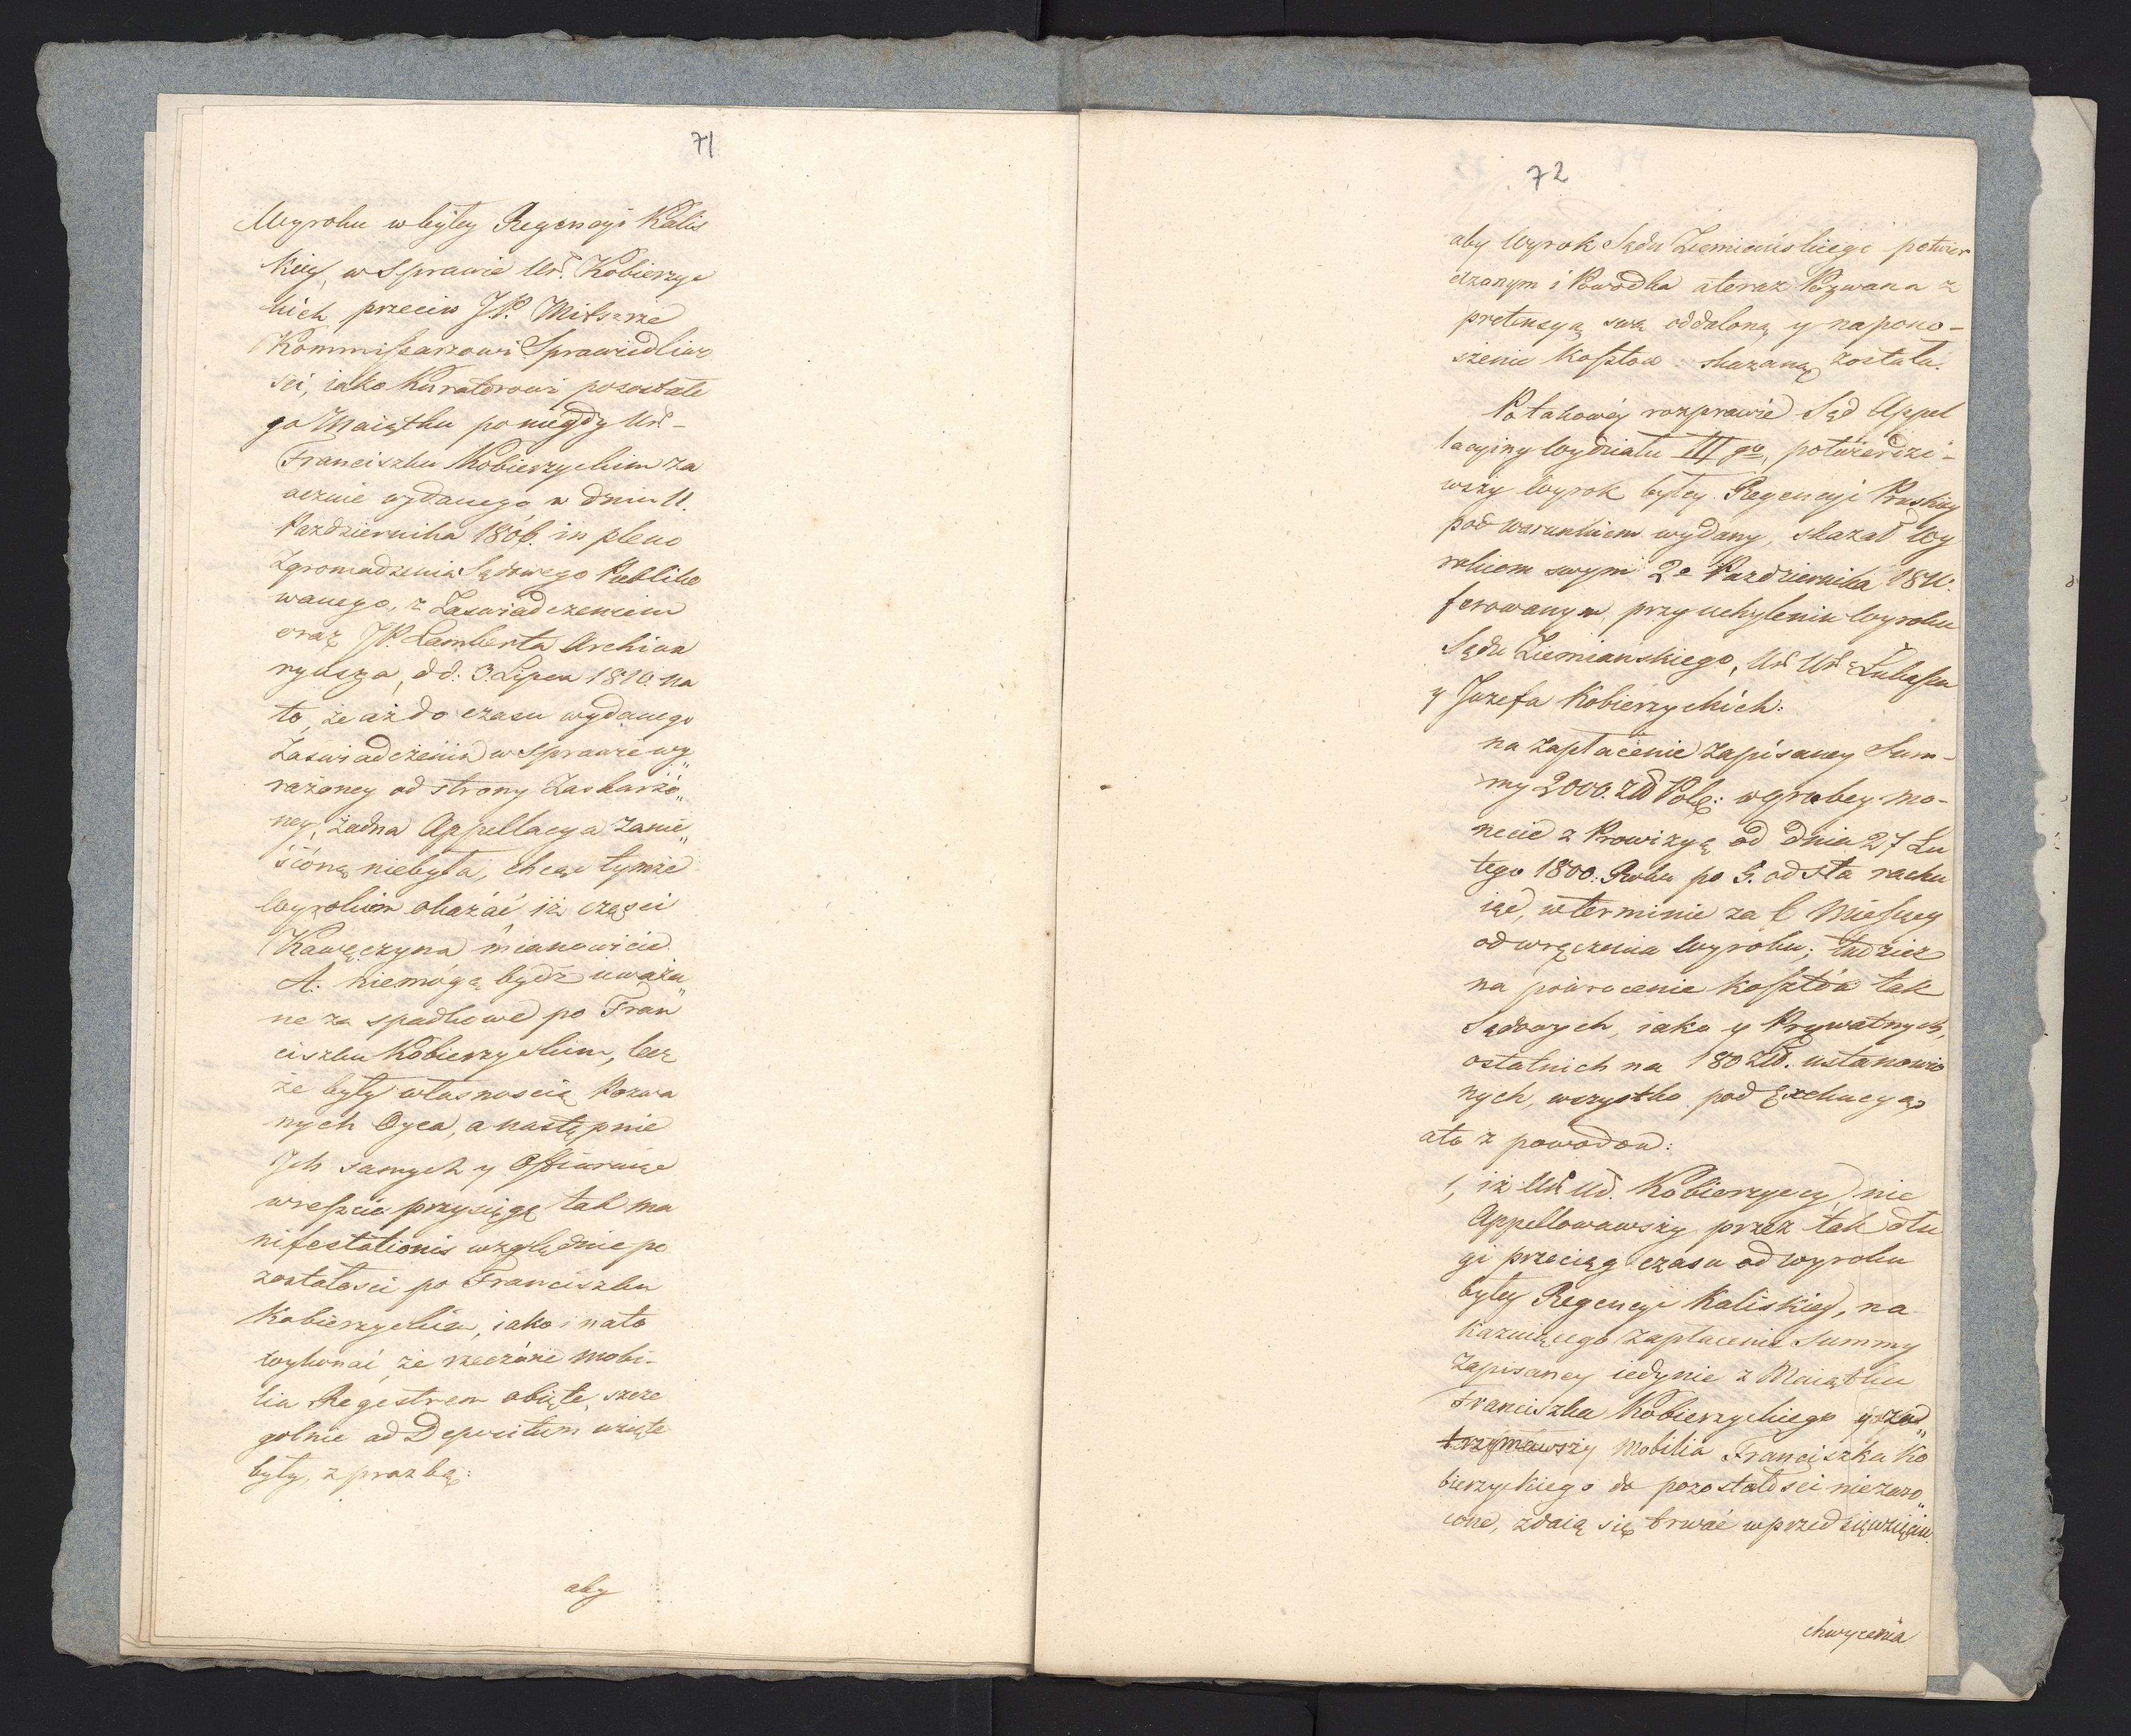 71
Wyroku w byłey Regencyi Kalis
kiey, w Sprawie Ur. Kobierzyc
kich przeciw JP. Mitserze
Kommissarzowi Sprawiedliwo
sci, iako Kuratorowi pozostałe
go Maiątku po niegdy Ur-
Franciszku Kobierzyckim za
ocznie wydanego w dniu 11.
Pazdziernika 1806. in pleno
Zgromadzenia Sądowego Publiko
wanego, z Zaswiadczeniem
oraz JP. Lamberta Archiwa
ryusza, dd: 3. Lipca 1810. na
to, że aż do czasu wydanego
Zaswiadczenia w sprawie wy„
rażoney od strony Zaskarżo„
ney, żadna Appellacya zanie„
śioną niebyła, chcąc tymże
Wyrokiem okazać iż częsci
Kawęczyna mianowicie
A. niemogą bydz uważa„
ne za spadkowe po Fran
ciszku Kobierzyckim, lecz
że były własnoscią Pozwa
nych Oyca, a następnie
Ich samych y Offiaruiąc
wreszcie przysięgę tak ma
nifestationis względnie po
zostałosci po Franciszku
Kobierzyckim, iako i na to
wykonać, że rzeczóne mobi-
lia Regestrem obięte, szcze
golnie ad Depositum wzięte
były, z prozbą:
aby
72
aby Wyrok Sądu Ziemiańskiego potwier
dzonym i Powodka a teraz Pozwana z
pretensyą swą oddaloną y na pono-
szenie Kosztow skazaną została.
Po takowéy rozprawie Sąd Appel
lacyiny Wydziału III go, potwierdzi-
wszy Wyrok byłey Regencyi Pruskiey
pod warunkiem wydany, skazał Wy
rokiem swym 2o Pazdziernika 1811.
ferowanym, przy uchyleniu Wyroku
Sądu Ziemianskiego, Ur Ur Łukasza
y Jozefa Kobierzyckich:
na zapłacenie zapisaney Sum-
my 2000. Zł Pols: w grubey mo-
necie z Prowizyą od dnia 27 Lu
tego 1800. Roku po 5. od sta rachu
iąc, w terminie za 6 Miesięcy
od wręczenia Wyroku; tudzież
na powrocenie kosztów tak
Sądowych, iako y Prywatnych,
ostatnich na 180 Zł. ustanowio
nych, wszystko pod Exekucyą,
a to z powodow:
1, iż Ur Ur. Kobierzyccy, nie
Appellowawszy przez tak dłu
gi przeciąg czasu od wyroku
byłey Regencyi Kaliskiey, na
kazuiącego zapłacenie Summy
Zapisaney iedynie z Maiątku
Franciszka Kobierzyckiego
trzymawszy mobilia Franciszka Ko
bierzyckiego do pozostałosci niezwro„
cone, zdaią się trwać w przedsięwzięciu
chwycenia